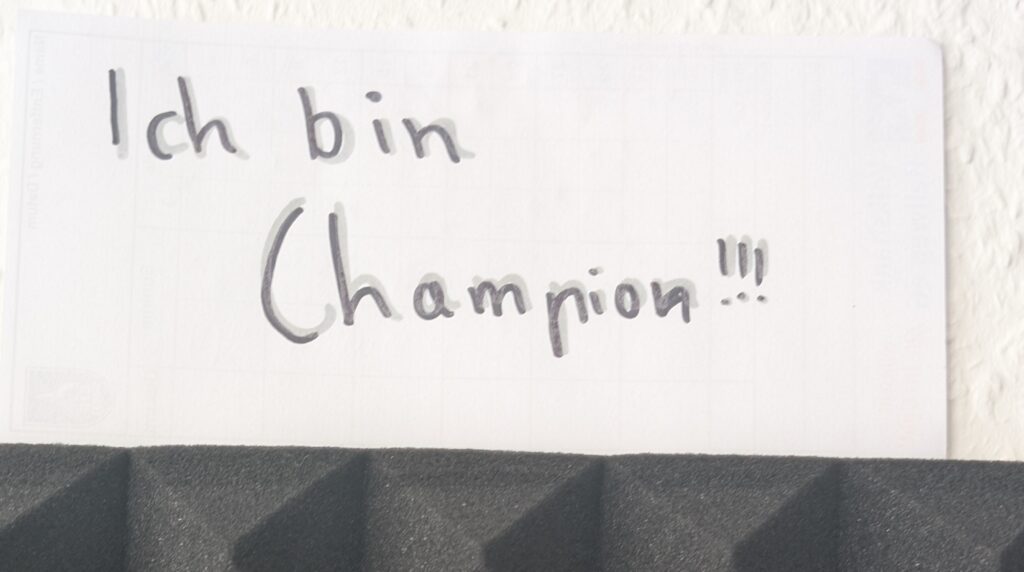 Ich bin
Champion!!!